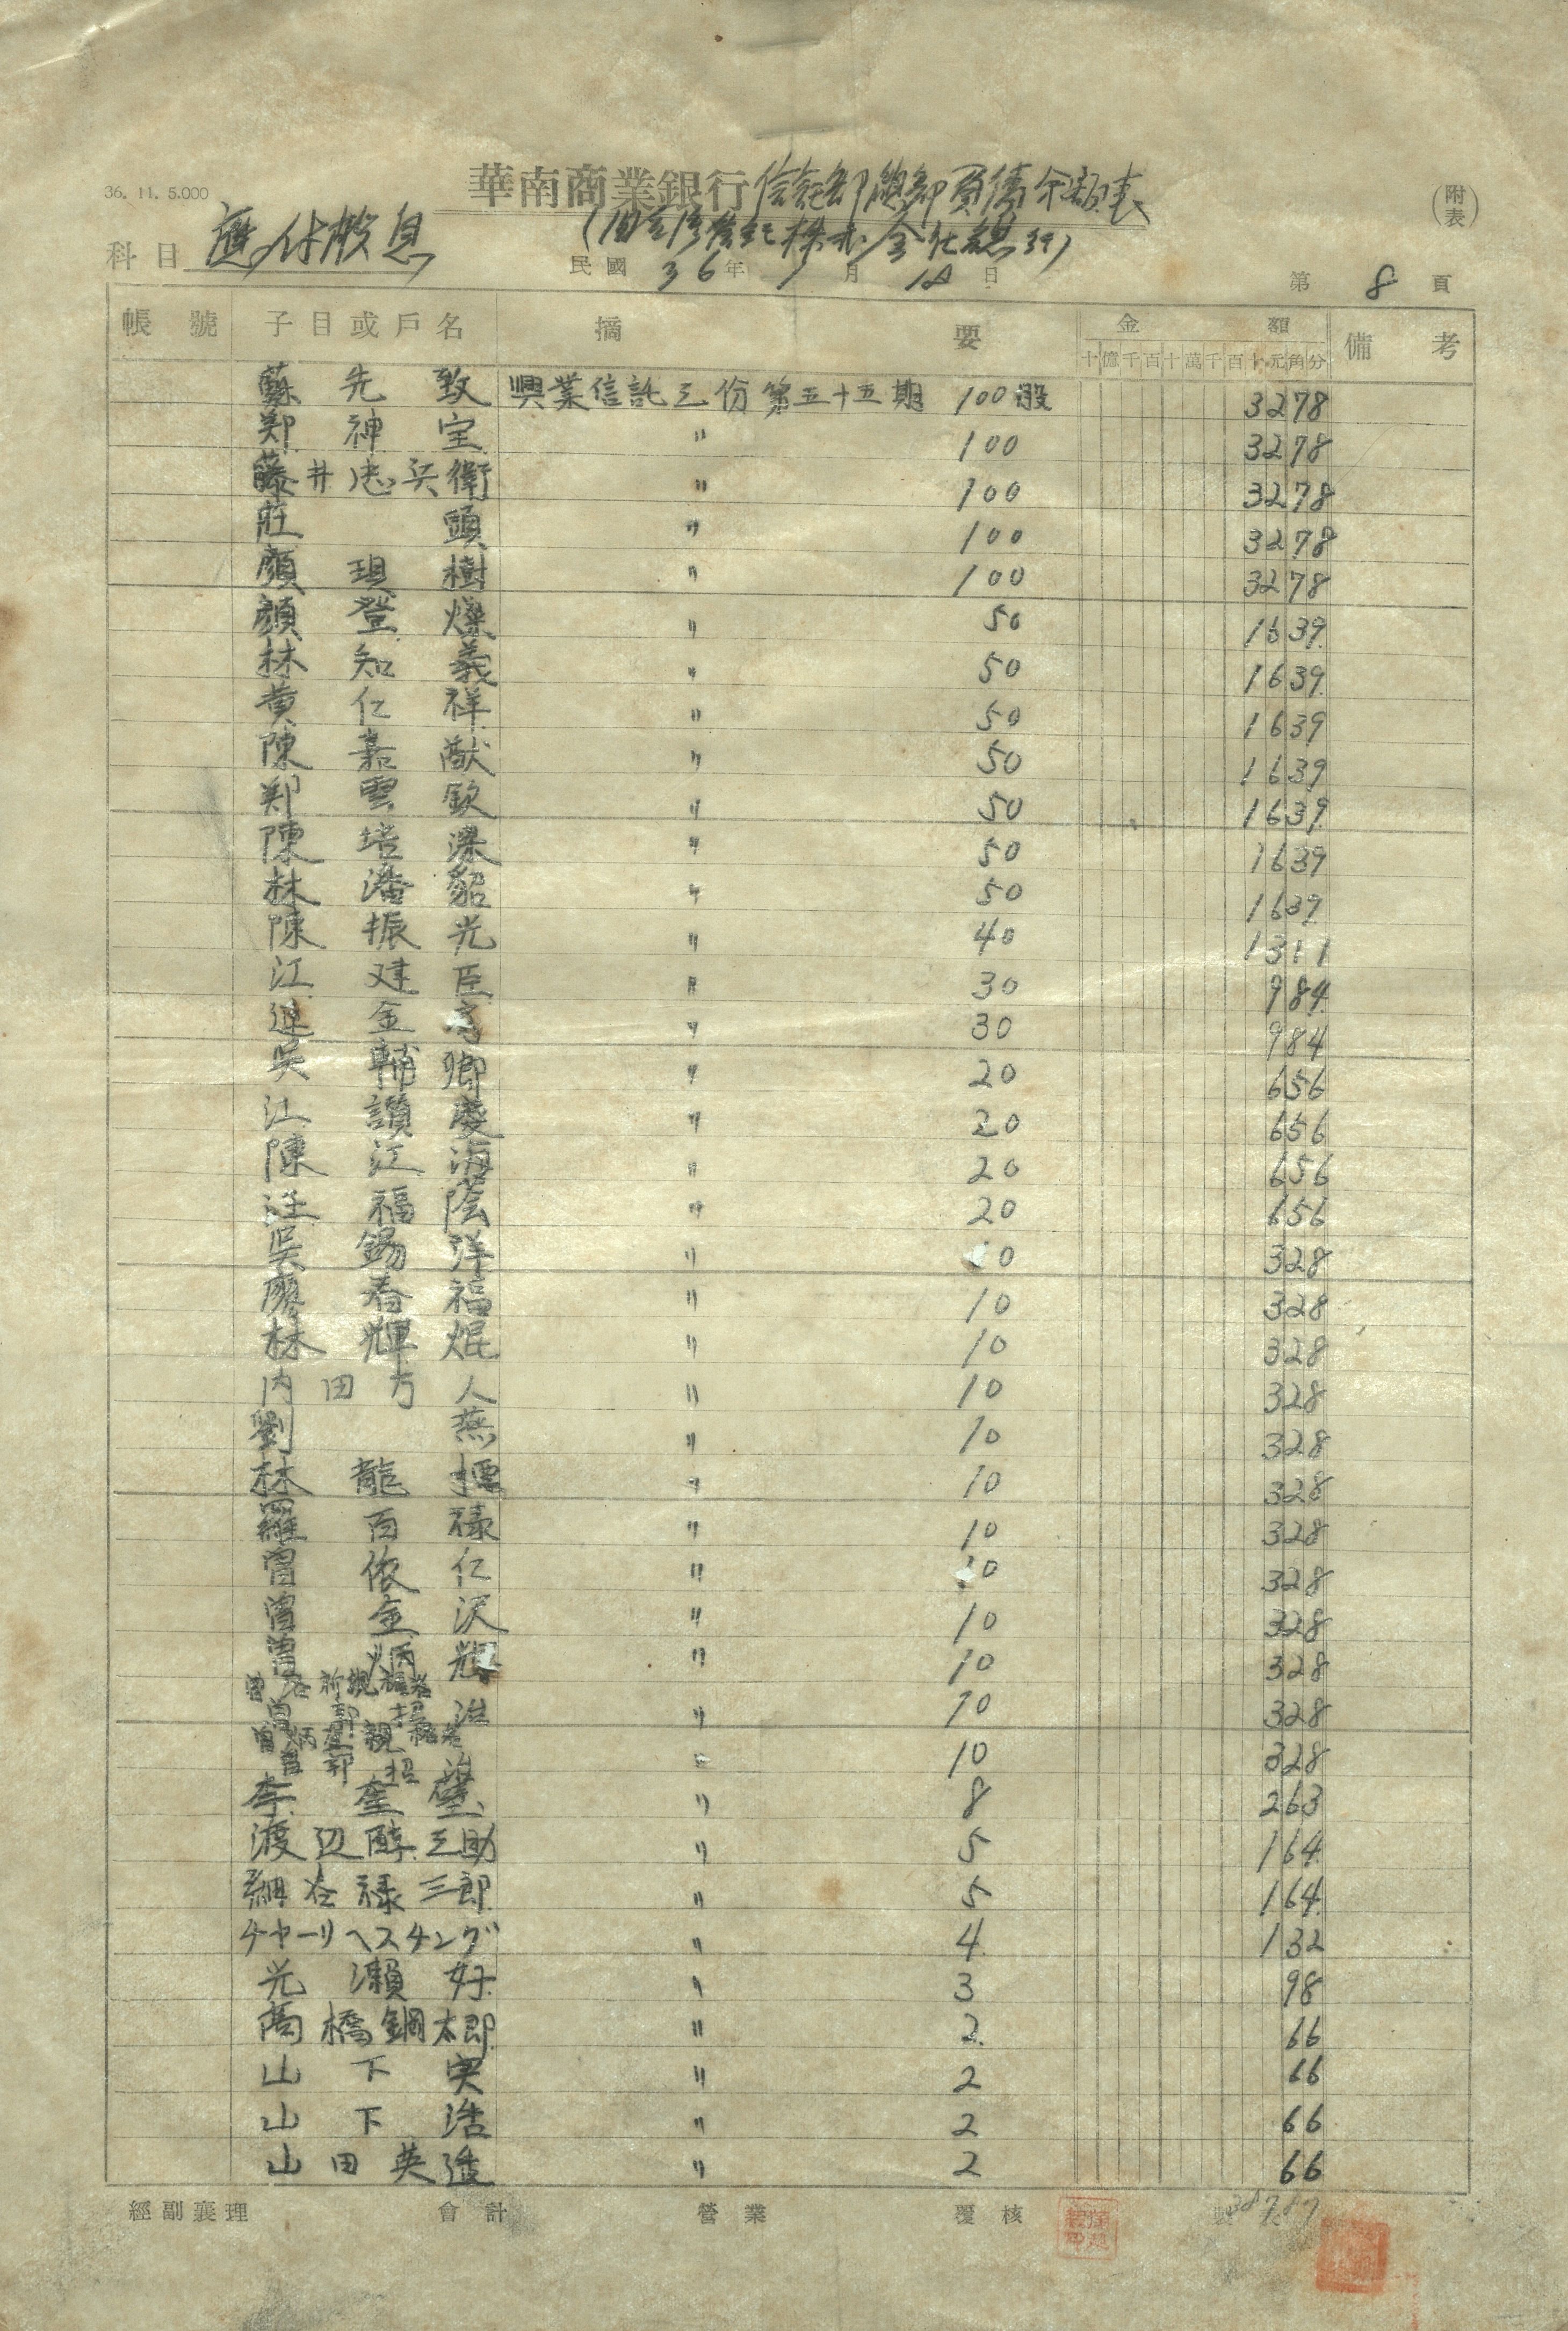 36. 11. 5.000
華南商業銀行信託部總部負債余額表
(附表)
科目 應付股息
民國 36年 月 18 日
第 8 頁
帳號 子目或戶名 摘要 金額 備考
十億千百十萬千百十元角分
蘇先致 興業信託 份第五十五期 100股 3278
郑神宝 〃 100 3278
藤井忠兵衛 〃 100 3278
莊頭 〃 100 3278
顏現樹 〃 100 3278
顏登燦 〃 50 1639
林知義 〃 50 1639
黄仁祥 〃 50 1639
陳嘉猷 〃 50 1639
郑雲欽 〃 50 1639
陳培濚 〃 50 1639
林潘貂 〃 50 1639
陳振光 〃 40 1311
江建臣 〃 30 984
連金 〃 30 984
吳輔卿 〃 20 656
江讚慶 〃 20 656
陳江海 〃 20 656
汪福蔭 〃 20 656
吳錫洋 〃 0 328
廖春福 〃 10 328
林輝焜 〃 10 328
内田方人 〃 10 328
劉燕 〃 10 328
林龍標 〃 10 328
羅百禄 〃 10 328
曾依仁 〃 0 328
曾金沢 〃 10 328
曾炳 〃 10 328
〃 10 328
〃 10 328
李奎璧 〃 8 263
渡辺醇三助 〃 5 164
細谷禄三郎 〃 5 164
チャーリヘスチング 〃 4 132
光瀨好 〃 3 98
高橋鋼太郎 〃 2 66
山下実 〃 2 66
山下浩 〃 2 66
山田英造 〃 2 66
經副襄理 會計 營業 覆核